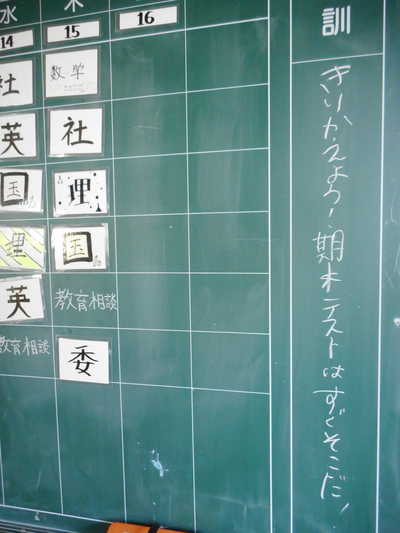 水 木
14 15 16
社 数学
英 社
国 理
理 国
英 教育相談
教育相談 委
訓
きりかえよう!期末テストはすぐそこだ!